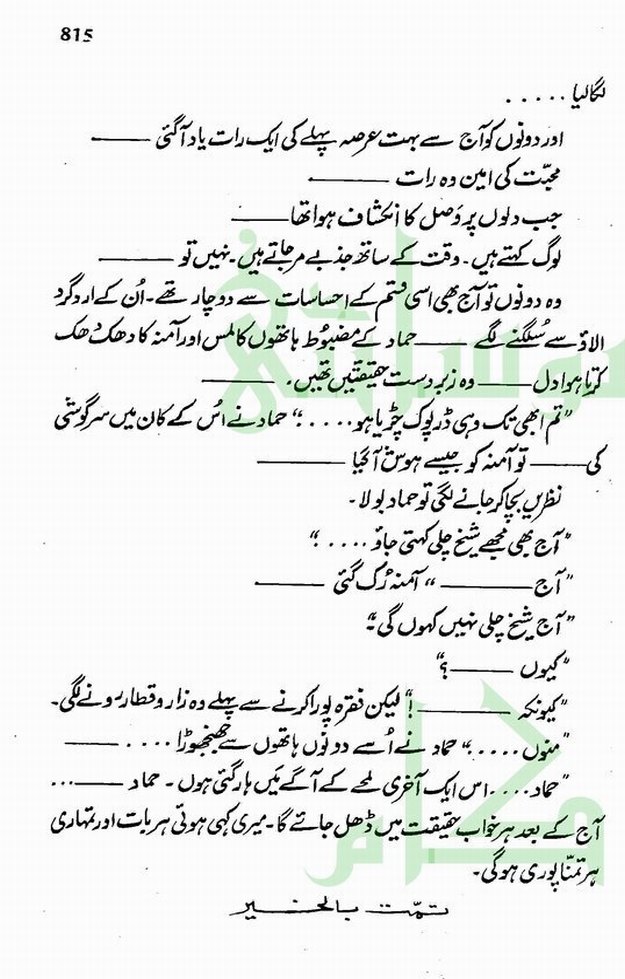 815
لگالیا . . . . .
اور دونوں کو آج سے بہت عرصہ پہلے کی ایک رات یاد آگئی ———
محبّت کی امین وہ رات ———
جب دلوں پر وَصل کا انکشاف ہوا تھا ———
لوگ کہتے ہیں۔ وقت کے ساتھ جذبے مرجاتے ہیں۔ نہیں تو ———
وہ دونوں تو آج بھی اسی قسم کے احساسات سے دوچار تھے۔ اُن کے اردگرد
الاؤ سے سُلگنے لگے ——— حماد کے مضبُوط ہاتھوں کا لمس اور آمنہ کا دھک دھک
کرتا ہوا دل ——— وہ زبردست حقیقتیں تھیں۔ ———
”تم ابھی تک وہی ڈرپوک چڑیا ہو . . . . ؛“ حماد نے اُس کے کان میں سرگوشی
کی ——— تو آمنہ کو جیسے ہوش آگیا ———
نظریں بچا کر جانے لگی تو حماد بولا۔
”آج بھی مجھے شیخ چلی کہتی جاؤ . . . . ؛“
”آج ———“ آمنہ رُک گئی ———
”آج شیخ چلی نہیں کہوں گی۔“
”کیوں ———؟“
”کیونکہ ———!“ لیکن فقرہ پورا کرنے سے پہلے وہ زار و قطار رونے لگی۔
”منوں . . . . ؛“ حماد نے اُسے دونوں ہاتھوں سے جھنجھوڑا . . . . ———
”حماد . . . . اس ایک آخری لمحے کے آگے مَیں ہار گئی ہوں۔ حماد ——— . . .
آج کے بعد ہر خواب حقیقت میں ڈھل جائے گا۔ میری کہی ہوئی ہر بات اور تمہاری
ہر تمنّا پوری ہوگی۔
تمّت بالخیر